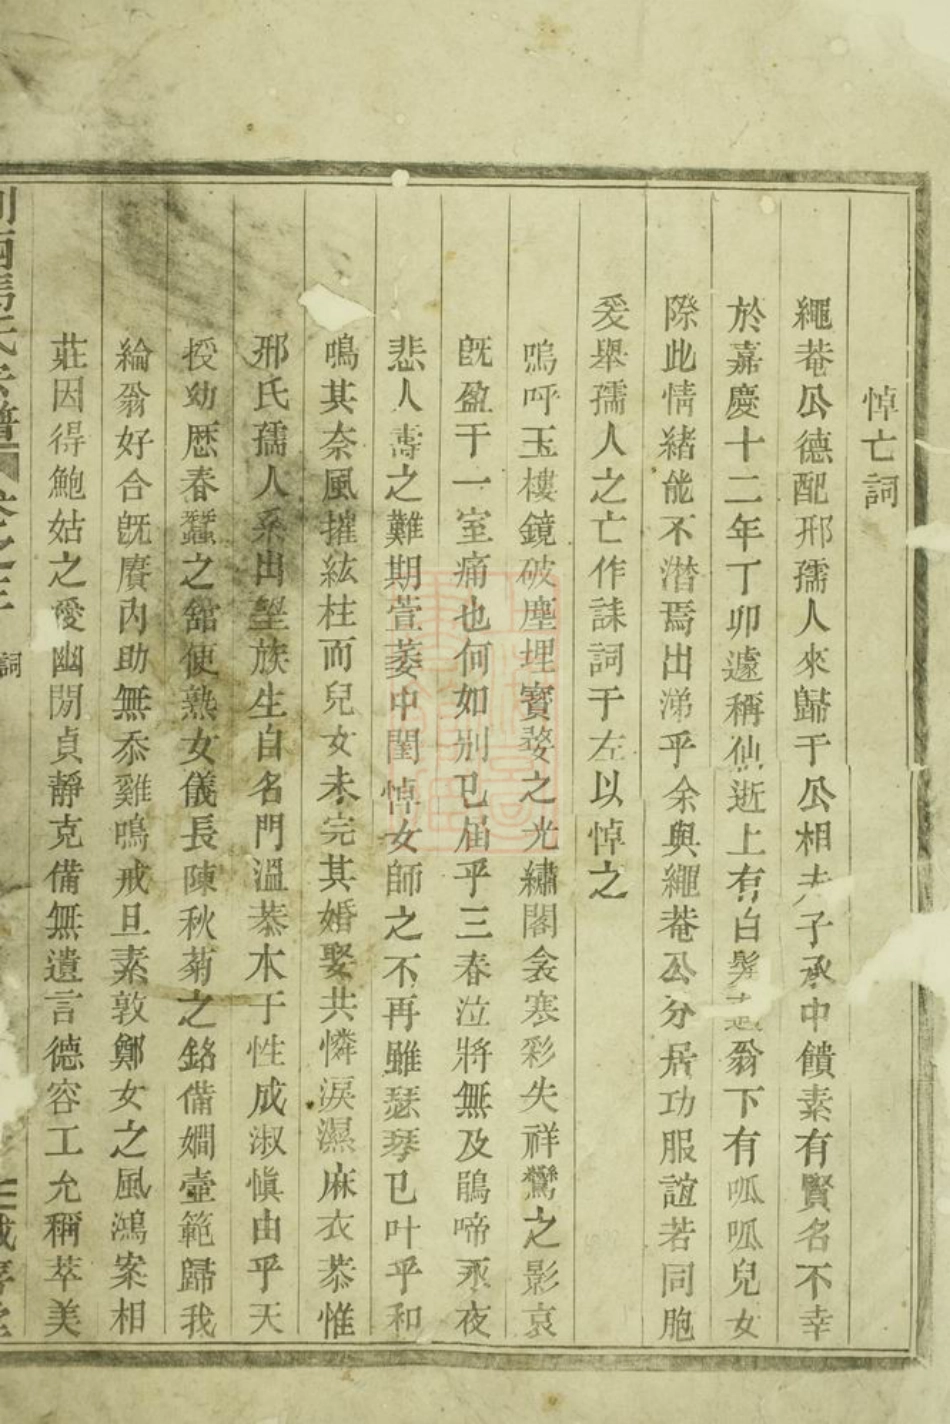 悼亡詞
繩菴公德配邢孺人來歸于公相夫子承中饋素有賢名不幸
於嘉慶十二年丁卯遽稱仙逝上有白髮翁下有呱呱兒女
際此情緒能不潸焉出涕乎余與繩菴公分居功服誼若同胞
爰舉孺人之亡作誄詞于左以悼之
嗚呼玉樓鏡破塵埋寶婺之光繡閣衾寒彩失祥鸞之影哀
旣盈于一室痛也何如别已届乎三春泣將無及鵑啼永夜
悲人壽之難期萱萎中閨悼女師之不再雖瑟琴已叶乎和
鳴其奈風摧絃柱而兒女未完其婚娶共憐淚濕麻衣恭惟
邢氏孺人系出望族生自名門溫恭本于性成淑愼由乎天
授幼歷春蠶之舘便熟女儀長陳秋菊之銘備嫺壼範歸我
綸翁好合旣賡內助無忝雞鳴戒旦素敦鄭女之風鴻案相
莊因得鮑姑之愛幽閒貞靜克備無遺言德容工允稱萃美
西馬氏宗譜 卷之三 詞